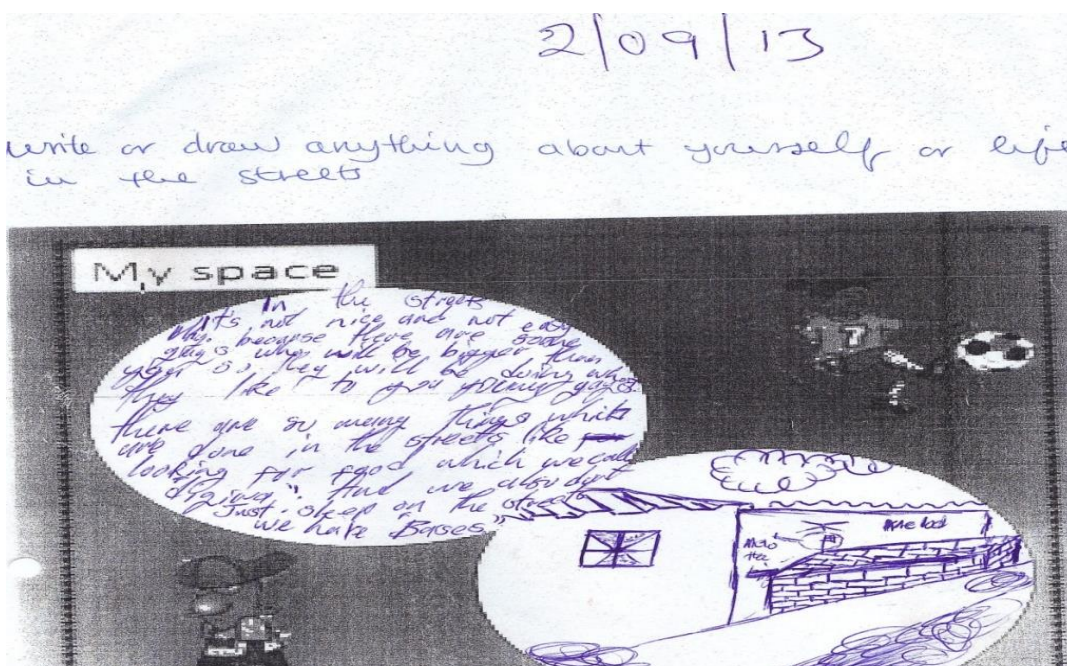 2/09/13
write or draw anything about yourself or life
in the streets
My space
In the streets
It's not nice and not easy
because there are some
guys who will be bigger than
you so they will be doing
they like to you young guys.
there are so many things which
are done in the streets like
looking for food which we call
". And we also dont
Just sleep on the streets
we have Bases"